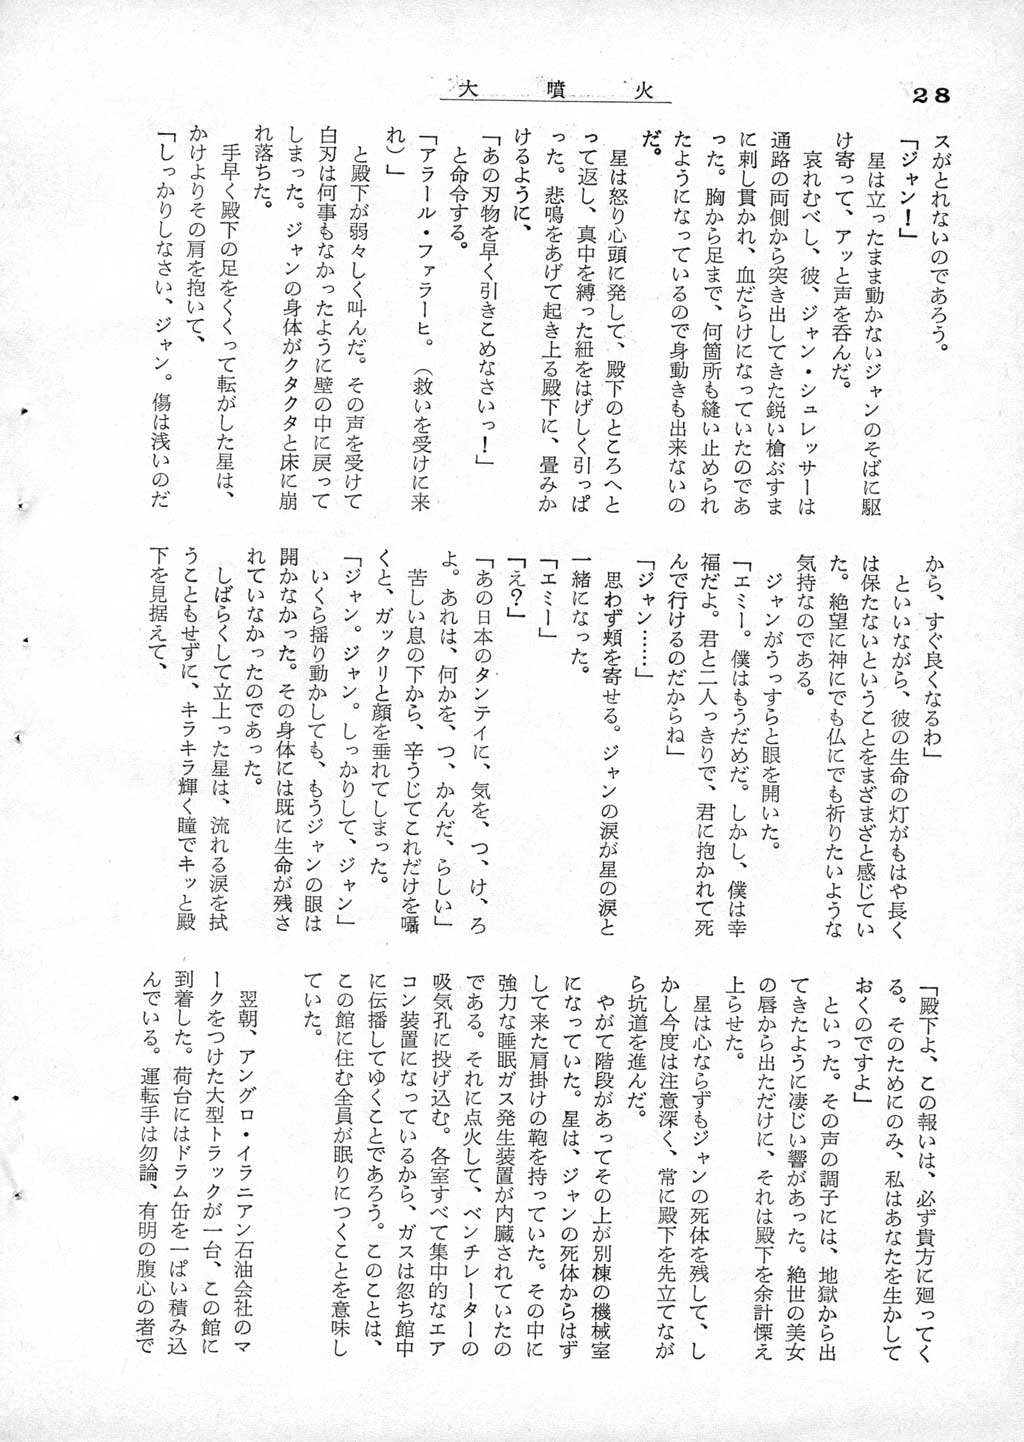 大噴火
28
スがとれないのであろう。
「ジャン！」
星は立ったまま動かないジャンのそばに駆
け寄って、アッと声を呑んだ。
哀れむべし、彼、ジャン・シュレッサーは
通路の両側から突き出してきた鋭い槍ぶすま
に刺し貫かれ、血だらけになっていたのであ
った。胸から足まで、何箇所も縫い止められ
たようになっているので身動きも出来ないの
だ。
星は怒り心頭に発して、殿下のところへと
って返し、真中を縛った紐をはげしく引っぱ
った。悲鳴をあげて起き上る殿下に、畳みか
けるように、
「あの刃物を早く引きこめなさいっ！」
と命令する。
「アラール・ファラーヒ。（救いを受けに来
れ）」
と殿下が弱々しく叫んだ。その声を受けて
白刃は何事もなかったように壁の中に戻って
しまった。ジャンの身体がクタクタと床に崩
れ落ちた。
手早く殿下の足をくくって転がした星は、
かけよりその肩を抱いて、
「しっかりしなさい、ジャン。傷は浅いのだ
から、すぐ良くなるわ」
といいながら、彼の生命の灯がもはや長く
は保たないということをまざまざと感じてい
た。絶望に神にでも仏にでも祈りたいような
気持なのである。
ジャンがうっすらと眼を開いた。
「エミー。僕はもうだめだ。しかし、僕は幸
福だよ。君と二人っきりで、君に抱かれて死
んで行けるのだからね」
「ジャン……」
思わず頬を寄せる。ジャンの涙が星の涙と
一緒になった。
「エミー」
「え？」
「あの日本のタンテイに、気を、つ、け、ろ
よ。あれは、何かを、つ、かんだ、らしい」
苦しい息の下から、辛うじてこれだけを囁
くと、ガックリと顔を垂れてしまった。
「ジャン。ジャン。しっかりして、ジャン」
いくら揺り動かしても、もうジャンの眼は
開かなかった。その身体には既に生命が残さ
れていなかったのであった。
しばらくして立上った星は、流れる涙を拭
うこともせずに、キラキラ輝く瞳でキッと殿
下を見据えて、
「殿下よ、この報いは、必ず貴方に廻ってく
る。そのためにのみ、私はあなたを生かして
おくのですよ」
といった。その声の調子には、地獄から出
てきたように凄じい響があった。絶世の美女
の唇から出ただけに、それは殿下を余計慄え
上らせた。
星は心ならずもジャンの死体を残して、し
かし今度は注意深く、常に殿下を先立てなが
ら坑道を進んだ。
やがて階段があってその上が別棟の機械室
になっていた。星は、ジャンの死体からはず
して来た肩掛けの鞄を持っていた。その中に
強力な睡眠ガス発生装置が内臓されていたの
である。それに点火して、ベンチレーターの
吸気孔に投げ込む。各室すべて集中的なエア
コン装置になっているから、ガスは忽ち館中
に伝播してゆくことであろう。このことは、
この館に住む全員が眠りにつくことを意味し
ていた。
翌朝、アングロ・イラニアン石油会社のマ
ークをつけた大型トラックが一台、この館に
到着した。荷台にはドラム缶を一ぱい積み込
んでいる。運転手は勿論、有明の腹心の者で